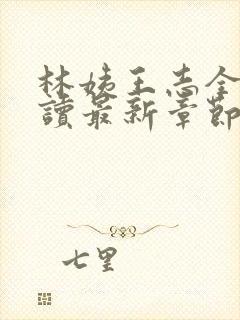 林姨王志全
讀最新章節
七里